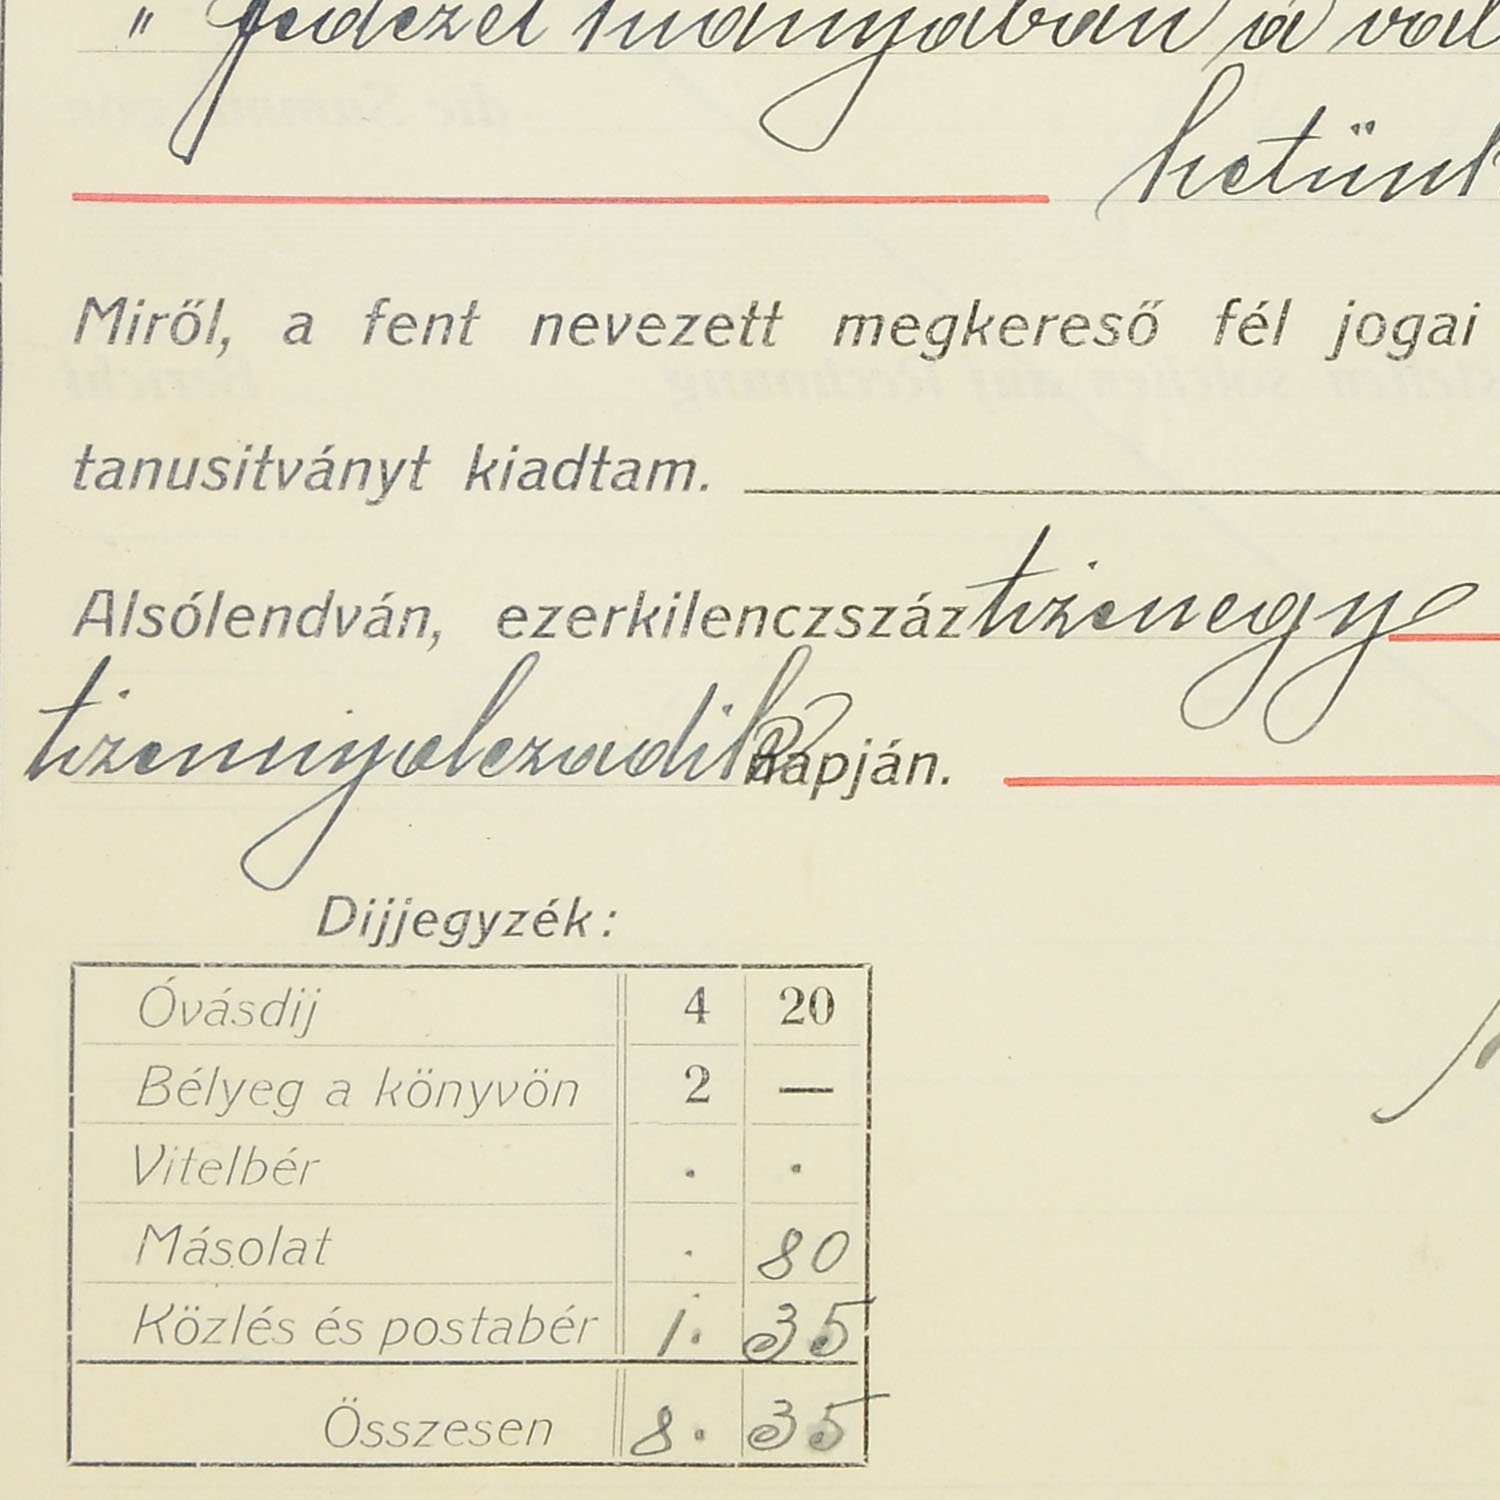 " fedezet hiányában a vál
hetünk
Miről, a fent nevezett megkereső fél jogai
tanusitványt kiadtam.
Alsólendván, ezerkilenczszáz tizenegy
tizennyolczadik napján.
Dijjegyzék:
Óvásdij 4 20
Bélyeg a könyvön 2 —
Vitelbér . .
Másolat . 80
Közlés és postabér 1. 35
Összesen 8. 35